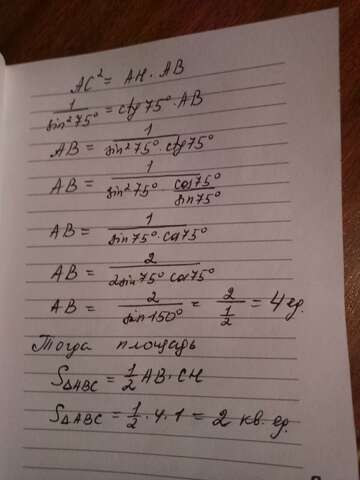 AC² = AH · AB
1/sin²75° = ctg 75° · AB
AB = 1/(sin²75° · ctg 75°)
AB = 1/(sin²75° · cos75°/sin75°)
AB = 1/(sin75° · cos75°)
AB = 2/(2sin75° · cos75°)
AB = 2/sin150° = 2/(1/2) = 4 ед.
Тогда площадь
S△ABC = 1/2 AB · CH
S△ABC = 1/2 · 4 · 1 = 2 кв. ед.